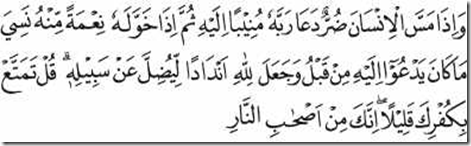 وَاِذَا مَسَّ الْاِنْسَانَ ضُرٌّ دَعَا رَبَّهٗ مُنِيْبًا اِلَيْهِ ثُمَّ اِذَا خَوَّلَهٗ نِعْمَةً مِّنْهُ نَسِيَ
مَا كَانَ يَدْعُوْٓا اِلَيْهِ مِنْ قَبْلُ وَجَعَلَ لِلّٰهِ اَنْدَادًا لِّيُضِلَّ عَنْ سَبِيْلِهٖ ۗ قُلْ تَمَتَّعْ
بِكُفْرِكَ قَلِيْلًا ۖ اِنَّكَ مِنْ اَصْحٰبِ النَّارِ